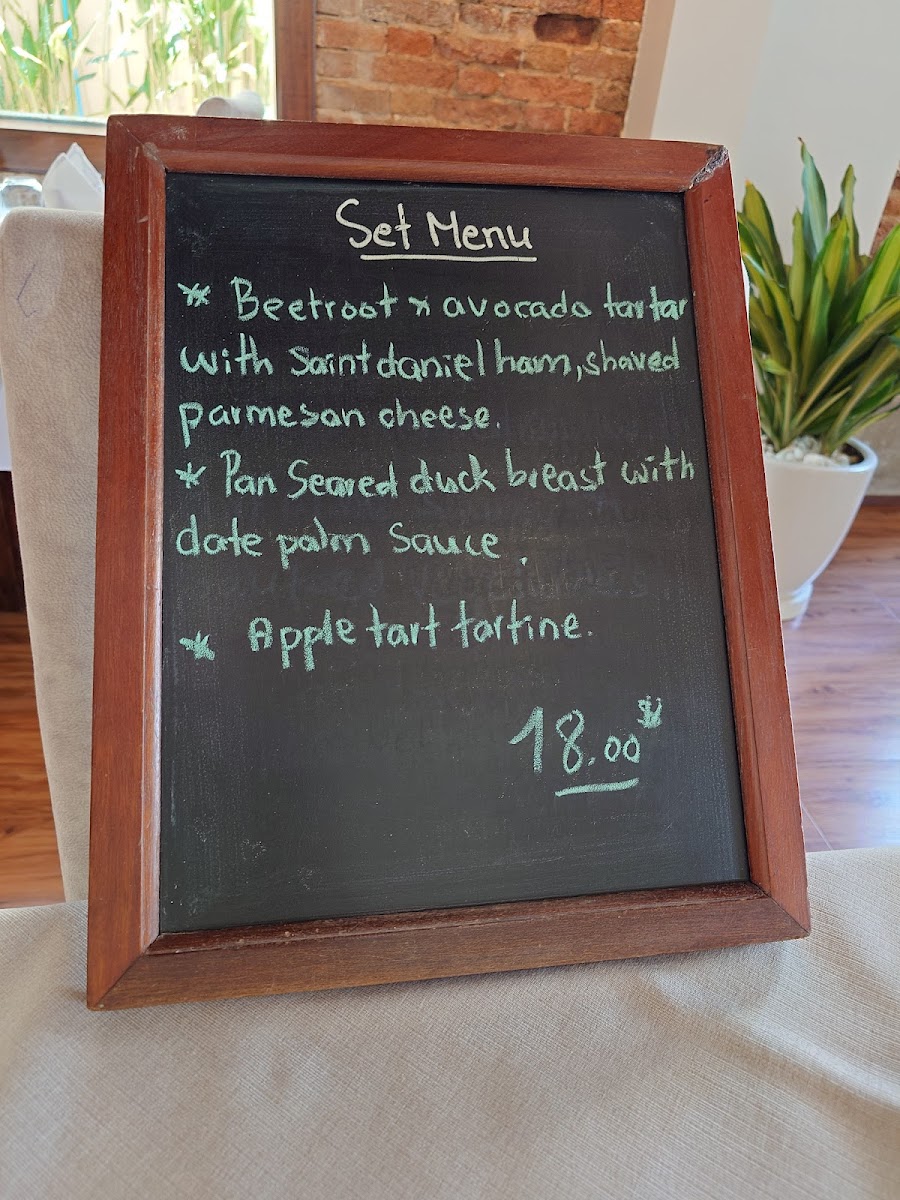 Set Menu
* Beetroot x avocado tartar
with Saint daniel ham, shaved
parmesan cheese.
* Pan Seared duck breast with
date palm Sauce.
* Apple tart tartine.
18.00$